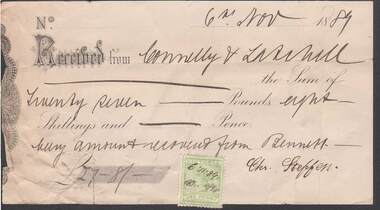 No. 6th Nov 1889
Received from Connelly &
the Sum of
Twenty seven — Pounds eight —
Shillings and — Pence
being amount recovered from Bennett —
£27-8/- Chr. Steffen.